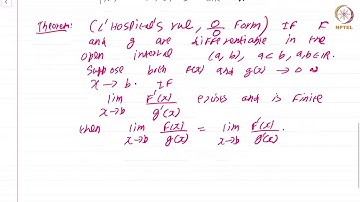 NPTEL
Theorem: (L'Hospital's rule, 0/0 form) If F
and g are differentiable in the
open interval (a, b), a<b, a,b∈R.
Suppose both F(x) and g(x) → 0 as
x → b. If
lim x→b F'(x)/g'(x) exists and is finite
then lim x→b F(x)/g(x) = lim x→b F'(x)/g'(x).